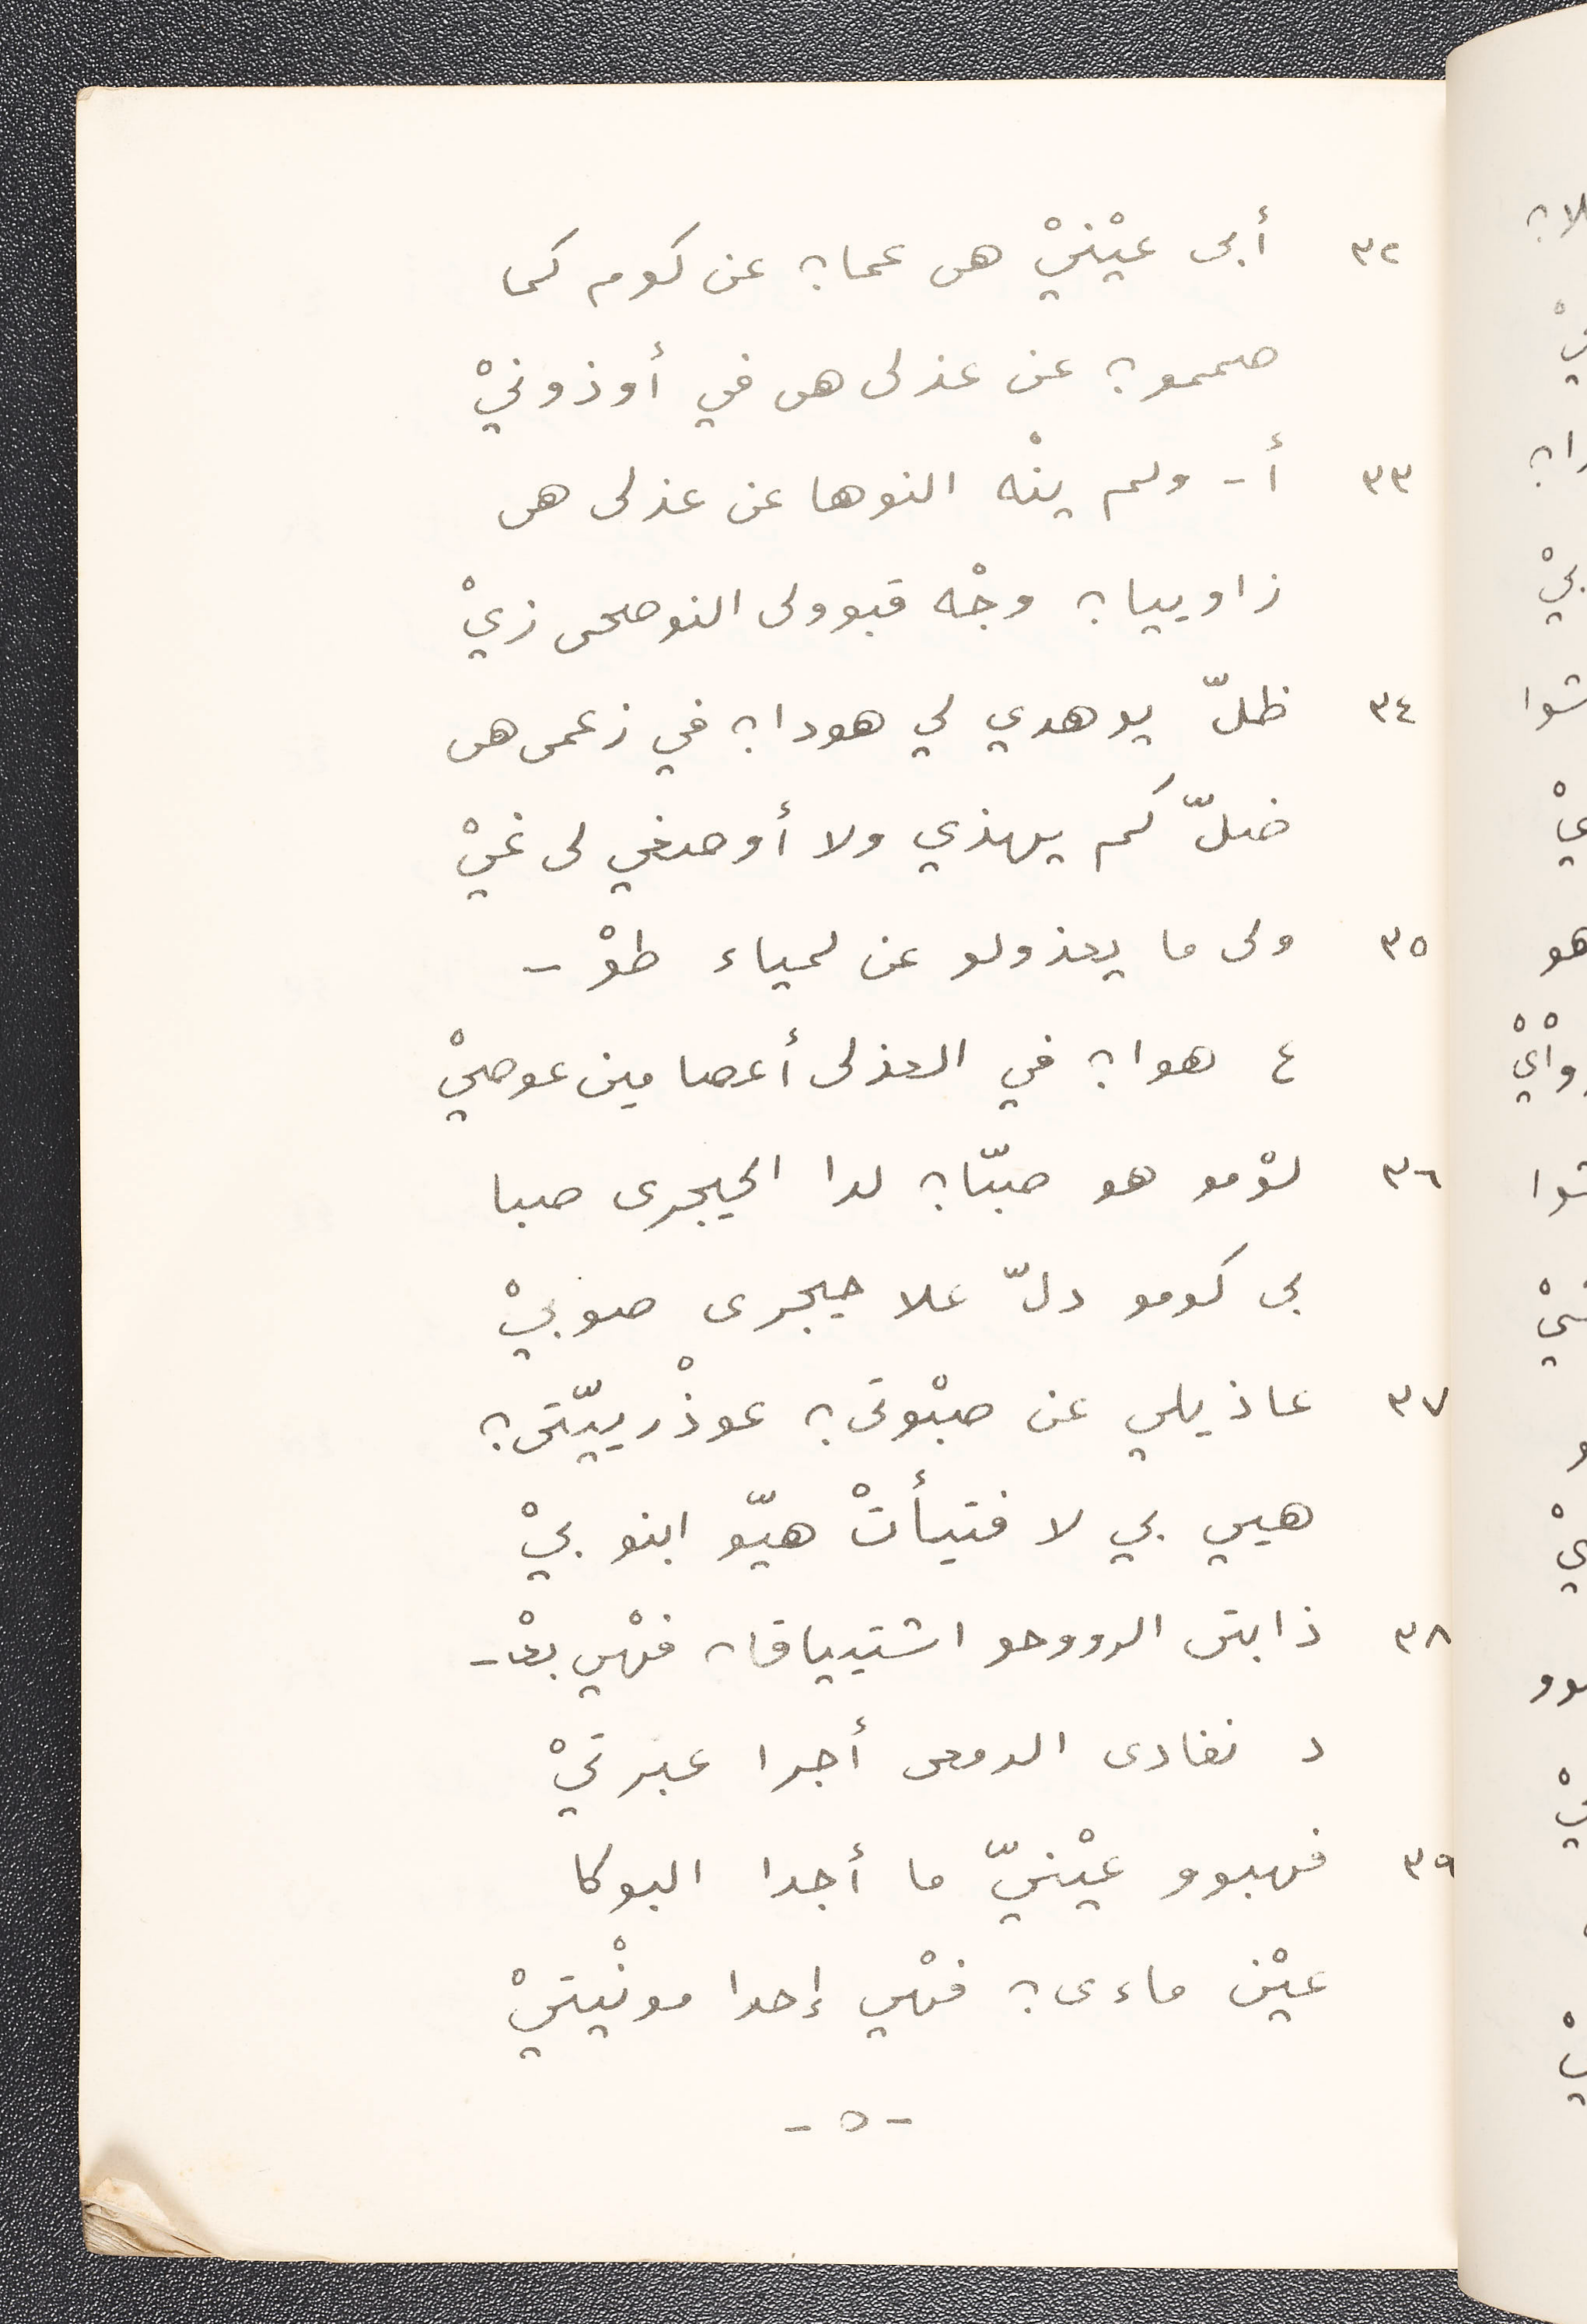 ٣٢ أبى عيْنيْ هى عما؟ عن كوم كما
صممو؟ عن عذلى هى في أوذونيْ
٣٣ أ- ولم ينْه النوها عن عذلى هى
زاوييا؟ وجْه قبوولى النوصحى زيْ
٣٤ ظلّ يوهدي لي هودا؟ في زعمى هى
ضلّ كم يهذي ولا أوصغي لى غيْ
٣٥ ولى ما يعذولو عن لمياء طوْ-
ع هوا؟ في العذلى أعصا مين عوصيْ
٣٦ لوْمو هو صبّا؟ لدا الحيجرى صبا
بى كومو دلّ علا حيجرى صوبيْ
٣٧ عاذيلي عن صبْوتى؟ عوذْرييّتى؟
هيي بي لا فتيأتْ هيّو ابنو بيْ
٣٨ ذابتى الرووحو اشتيياقا؟ فهْي بعْ-
د نفادى الدمعى أجرا عبرتيْ
٣٩ فهبوو عيْنيّ ما أجدا البوكا
عيْن ماءى؟ فهْي إحدا مونْيتيْ
-٥-